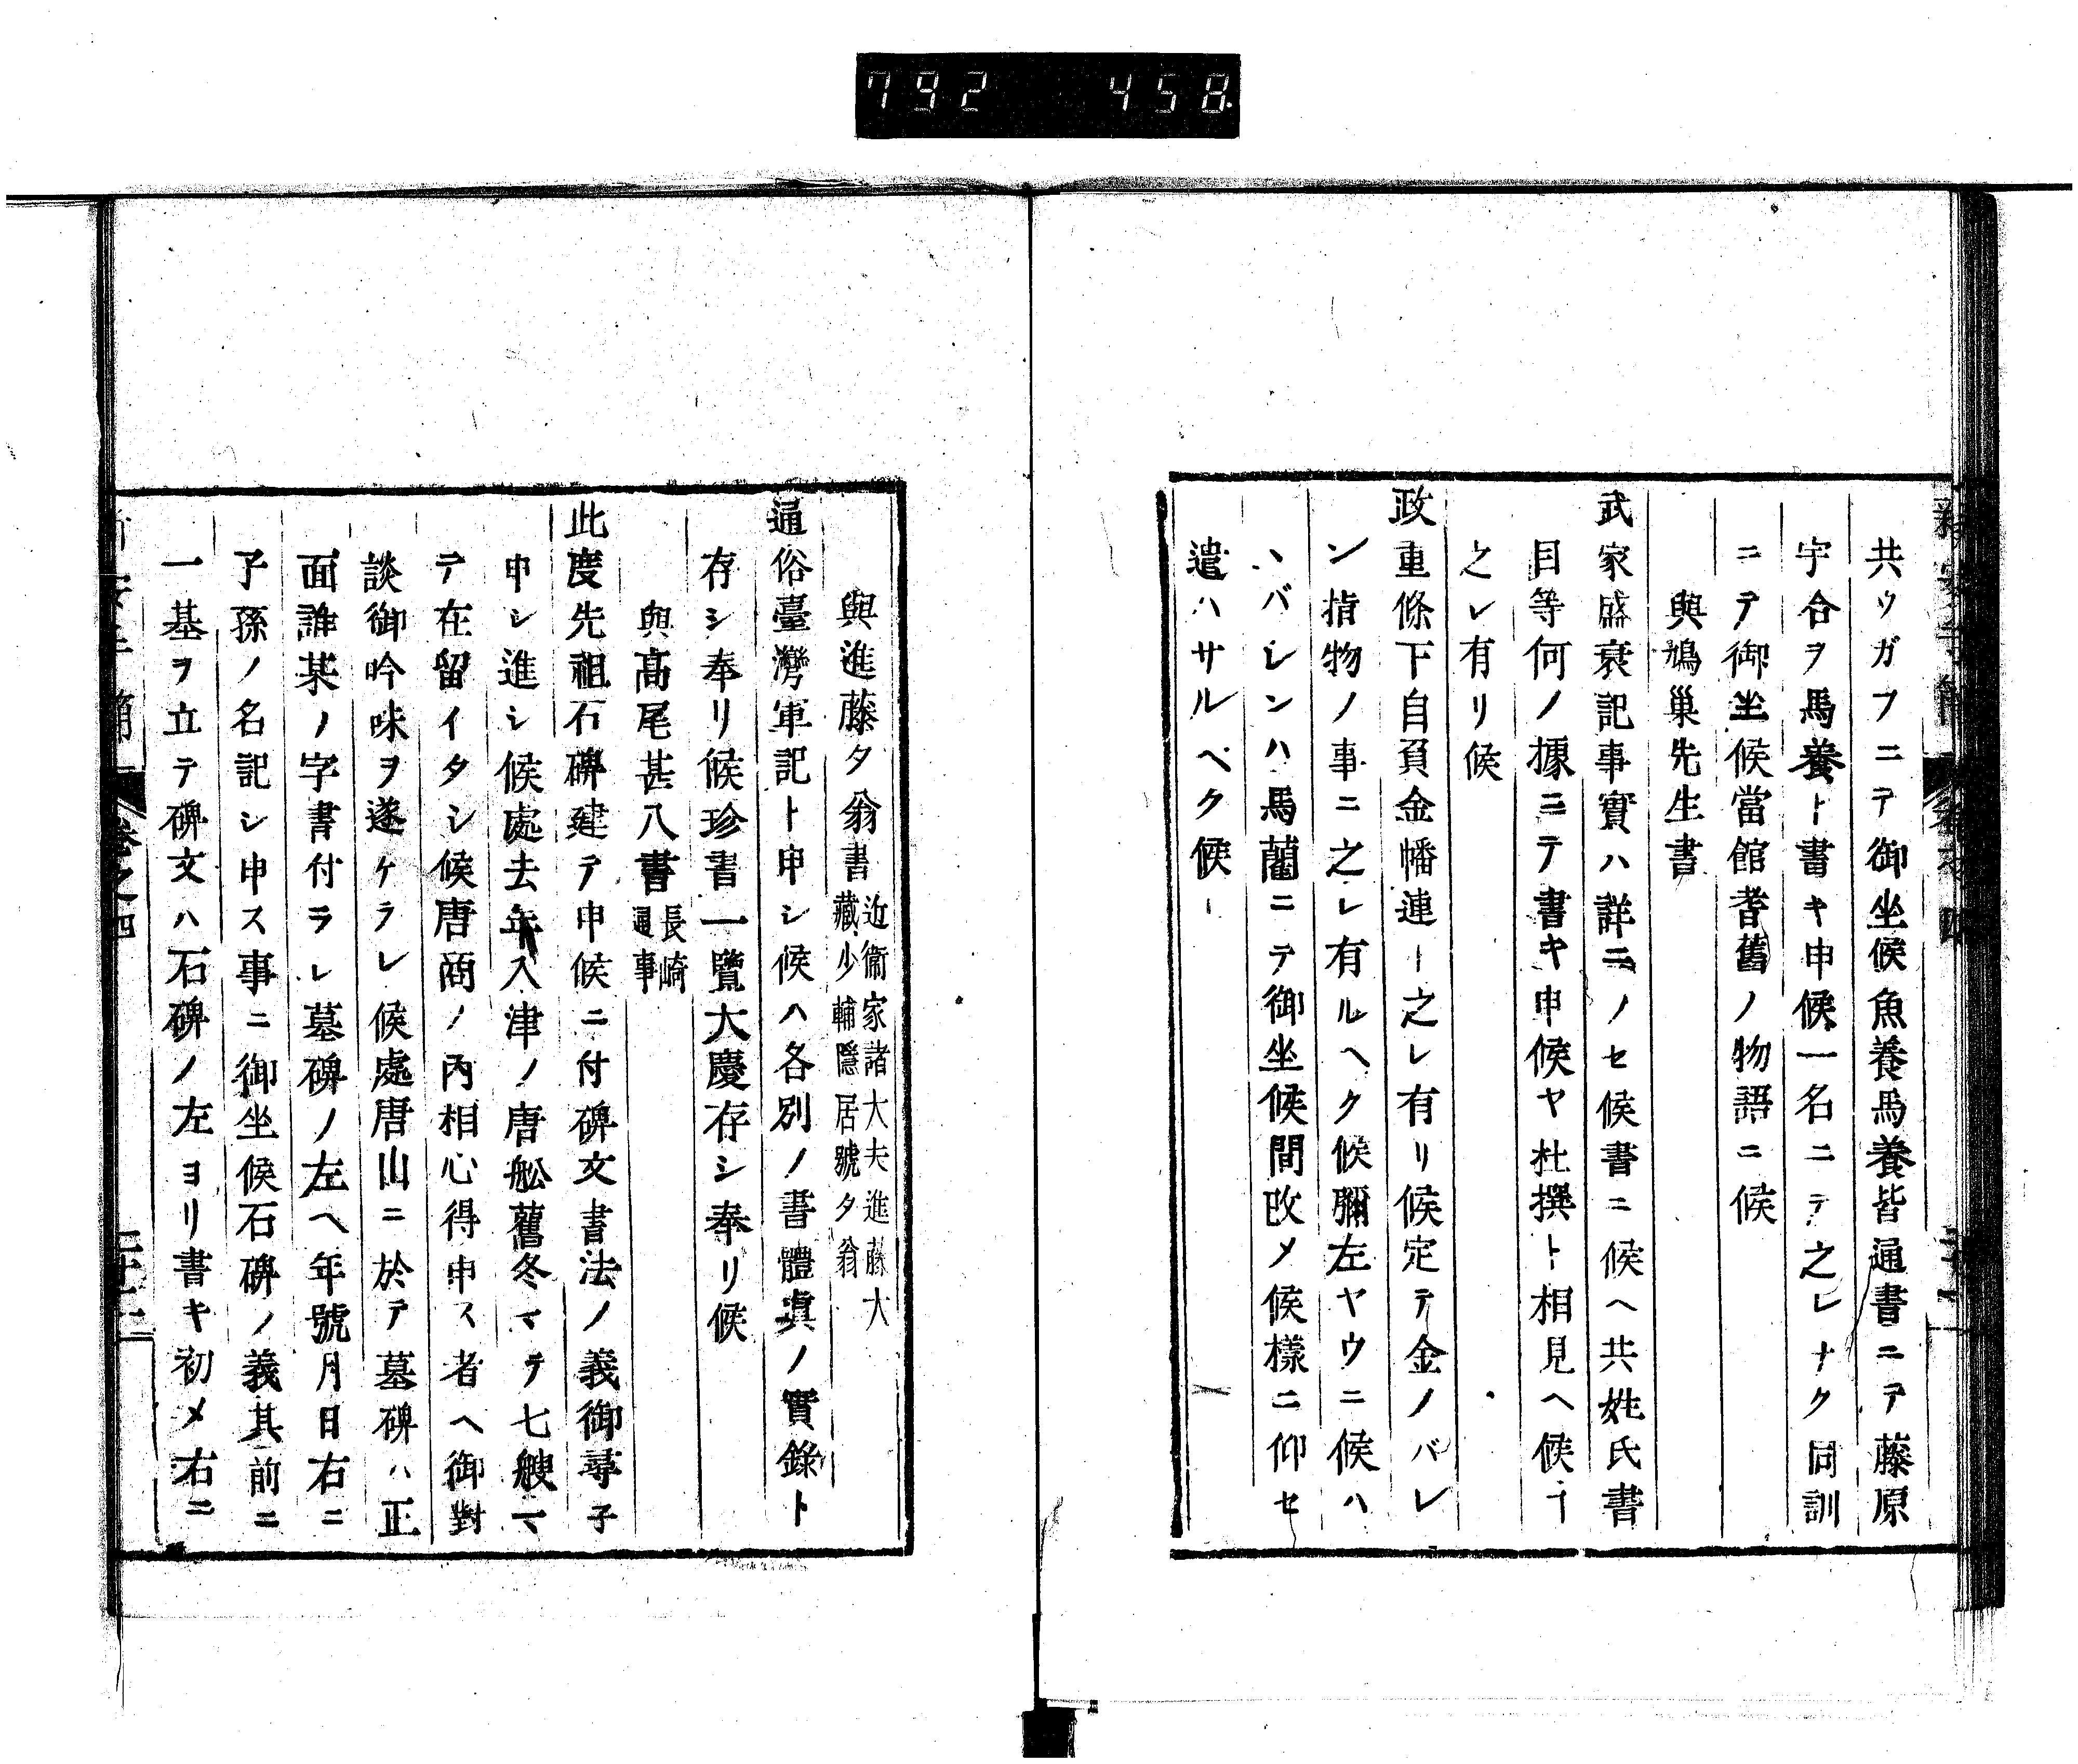 792 458
共ウガフニテ御坐候魚養馬養皆通書ニテ藤原
宇合ヲ馬養ト書キ申候一名ニテ之レナク同訓
ニテ御坐候當館耆舊ノ物語ニ候
與鳩巢先生書
武家盛衰記事實ハ詳ニノセ候書ニ候ヘ共姓氏書
目等何ノ據ニテ書キ申候ヤ杜撰ト相見ヘ候ヿ
之レ有リ候
政重條下自負金幡連ヿ之レ有リ候定テ金ノバレ
ン指物ノ事ニ之レ有ルヘク候彌左ヤウニ候ハ
ヽバレンハ馬藺ニテ御坐候間改メ候樣ニ仰セ
遣ハサルベク候
與進藤夕翁書 近衞家諸大夫進藤大
藏少輔隱居號夕翁
通俗臺灣軍記ト申シ候ハ各別ノ書體眞ノ實錄ト
存シ奉リ候珍書一覽大慶存シ奉リ候
與高尾甚八書 長崎
通事
此度先祖石碑建テ申候ニ付碑文書法ノ義御尋子
申シ進シ候處去年入津ノ唐舩舊冬マテ七艘マ
テ在留イタシ候唐商ノ內相心得申ス者ヘ御對
談御吟味ヲ遂ケラレ候處唐山ニ於テ墓碑ハ正
面誰某ノ字書付ラレ墓碑ノ左ヘ年號月日右ニ
子孫ノ名記シ申ス事ニ御坐候石碑ノ義其前ニ
一基ヲ立テ碑文ハ石碑ノ左ヨリ書キ初メ右ニ
卷之四